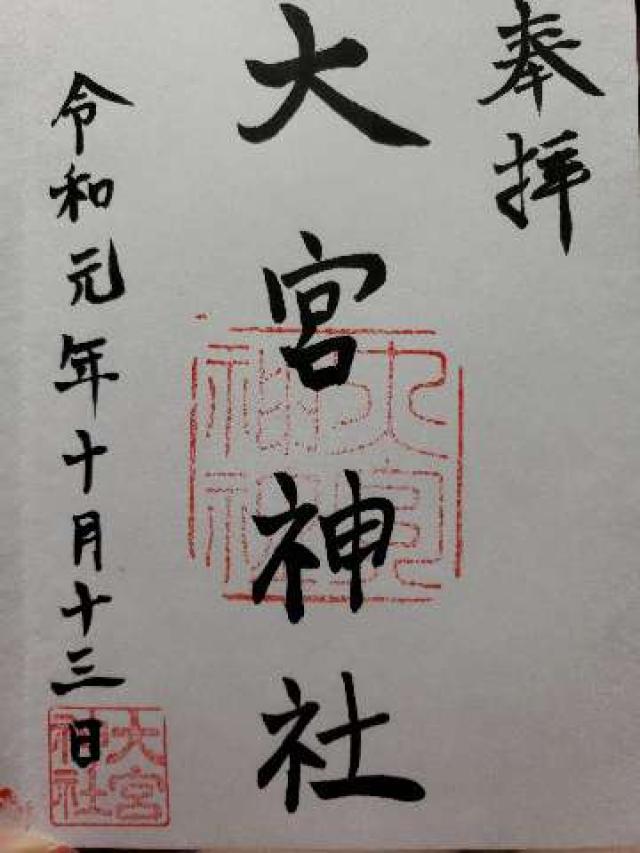 奉拝
大宮神社
令和元年十月十三日
大宮神社
大宮神社